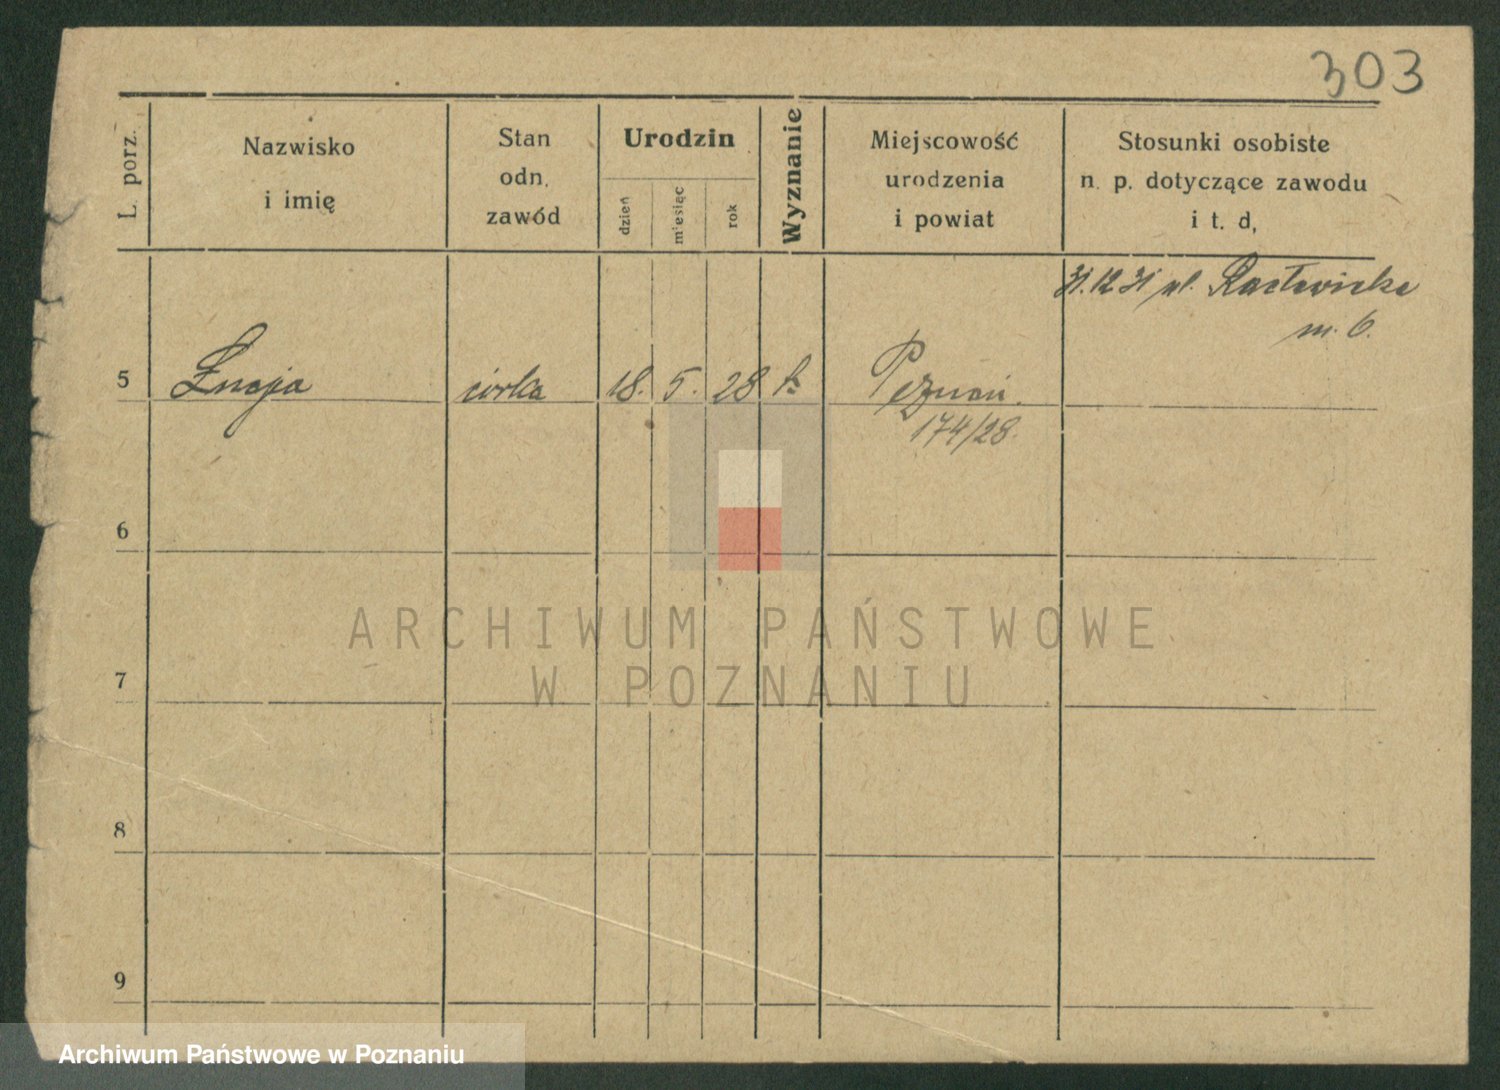 303
L. porz.
Nazwisko
i imię
Stan
odn.
zawód
Urodzin
dzień
m'esiąc
rok
Wyznanie
Miejscowość
urodzenia
i powiat
Stosunki osobiste
n. p. dotyczące zawodu
i t. d,
31.12.31 ul. Racławicka
m. 6.
5 Łucja córka 18. 5. 28 k. Poznań.
174/28.
6
ARCHIWUM PAŃSTWOWE
W POZNANIU
7
8
9
Archiwum Państwowe w Poznaniu